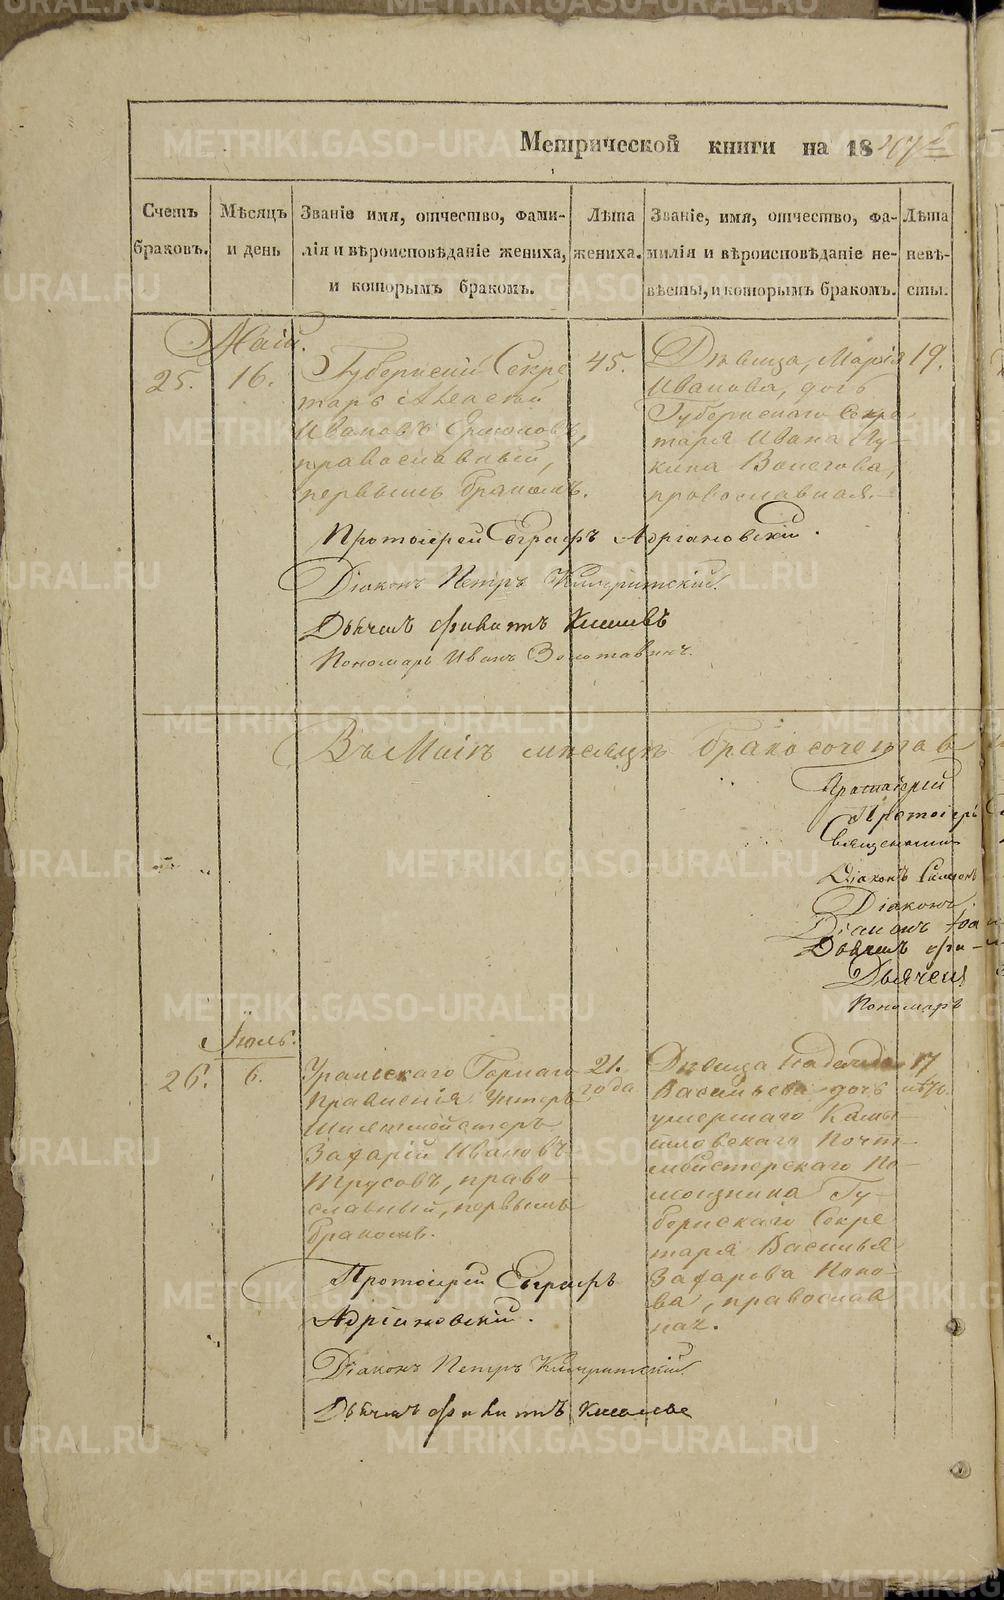 Метрической книги на 18
Счетъ браковъ.
Мѣсяцъ и день
Званіе имя, отчество, фами-
лія и вѣроисповѣданіе жениха,
и которымъ бракомъ.
Лѣта
жениха.
Званіе, имя, отчество, фа-
милія и вѣроисповѣданіе не-
вѣсты, и которымъ бракомъ.
Лѣта
невѣ-
сты.
Маій.
25.
16.
Губернскій Секре
тарь Алексѣй
Ивановъ Ермоловъ,
православный,
первымъ бракомъ.
45.
Дѣвица, Марія
Иванова, дочь
Губернскаго Секре-
таря Ивана Лу-
кина
православная.
19.
Протоіерей Евграфъ Адріановскій.
Діаконъ Петръ
Дьячекъ
Пономарь Иванъ Золотавинъ.
Въ Маіѣ мѣсяцѣ бракосочетав
Протоіерей
Протоіер
Священникъ
Діаконъ Симеонъ
Діаконъ
Діаконъ Іоа
Дьячекъ
Дьячекъ
Пономарь
Іюль.
26.
6.
Уральскаго Горнаго
Правленія Унтеръ
Шихтмейстеръ
Захарій Ивановъ
Трусовъ, право-
славный, первымъ
бракомъ.
21.
года
Дѣвица Надежда
Васильева дочь
умершаго Камы-
шловскаго Почт-
мейстерскаго По-
мощника Гу-
бернскаго Секре
таря Василья
Захарова Попо-
ва, православ
ная.
17
лѣтъ.
Протоіерей Евграфъ
Адріановскій.
Діаконъ Петръ
Дьячекъ
METRIKI.GASO-URAL.RU